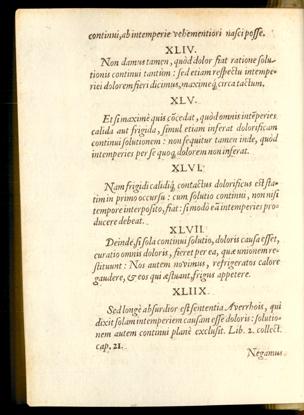 continui, ab intemperie vehementiori nasci posse.
XLIV.
Non damus tamen, quòd dolor fiat ratione solu-
tionis continui tantùm: sed etiam respectu intempe-
riei dolorem fieri dicimus, maximeq́; circa tactum.
XLV.
Et si maximè quis cōcedat, quòd omnis intēperies
calida aut frigida, simul etiam inferat dolorificam
continui solutionem: non sequitur tamen inde, quòd
intemperies per se quoq; dolorem non inferat.
XLVI.
Nam frigidi calidiq́; contactus dolorificus est sta-
tim in primo occursu: cum solutio continui, non nisi
tempore interposito, fiat: si modò eā intemperies pro-
ducere debeat.
XLVII.
Deinde, si sola continui solutio, doloris causa esset,
curatio omnis doloris, fieret per ea, quæ unionem re-
stituunt: Nos autem novimus, refrigeratos calore
gaudere, & eos qui æstuant, frigus appetere.
XLIIX.
Sed longè absurdior est sententia Averrhois, qui
dixit solam intemperiem causam esse doloris: solutio-
nem autem continui planè exclusit. Lib. 2. collect.
cap. 21.
Negamus